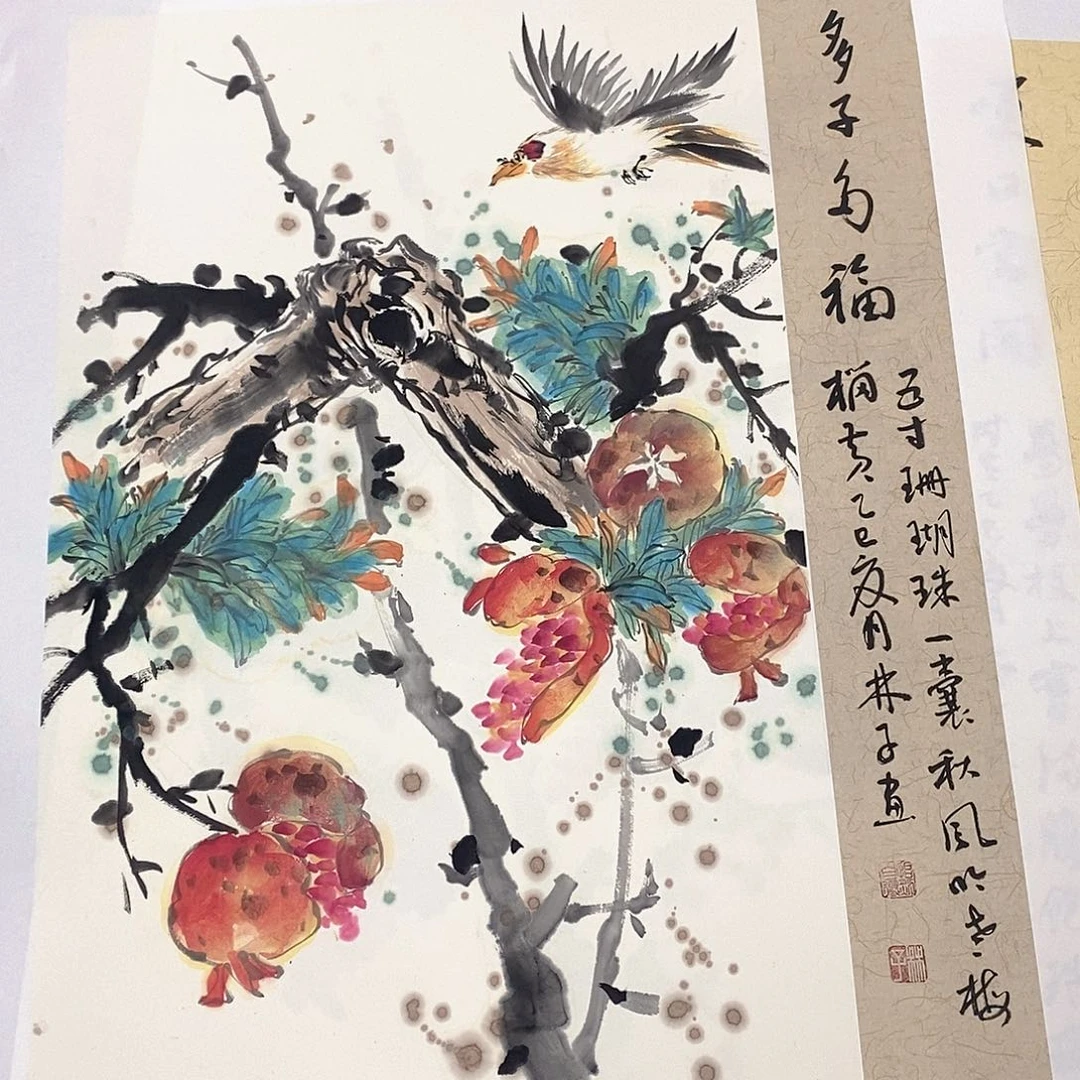 多子多福
五寸珊瑚珠一囊秋风吹老梅
榴黄乙巳夏月林子画